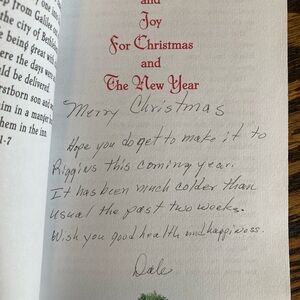 y one in
p from Galilee
e city of Bethleh
e being great with
ere the days were a
uld be delivered
irstborn son and w
him in a manger, be
them in the inn.
1-7
and
Joy
For Christmas
and
The New Year
Merry Christmas
Hope you do get to make it to
Riggins this coming year.
It has been much colder than
usual the past two weeks.
Wish you good health and happiness.
Dale